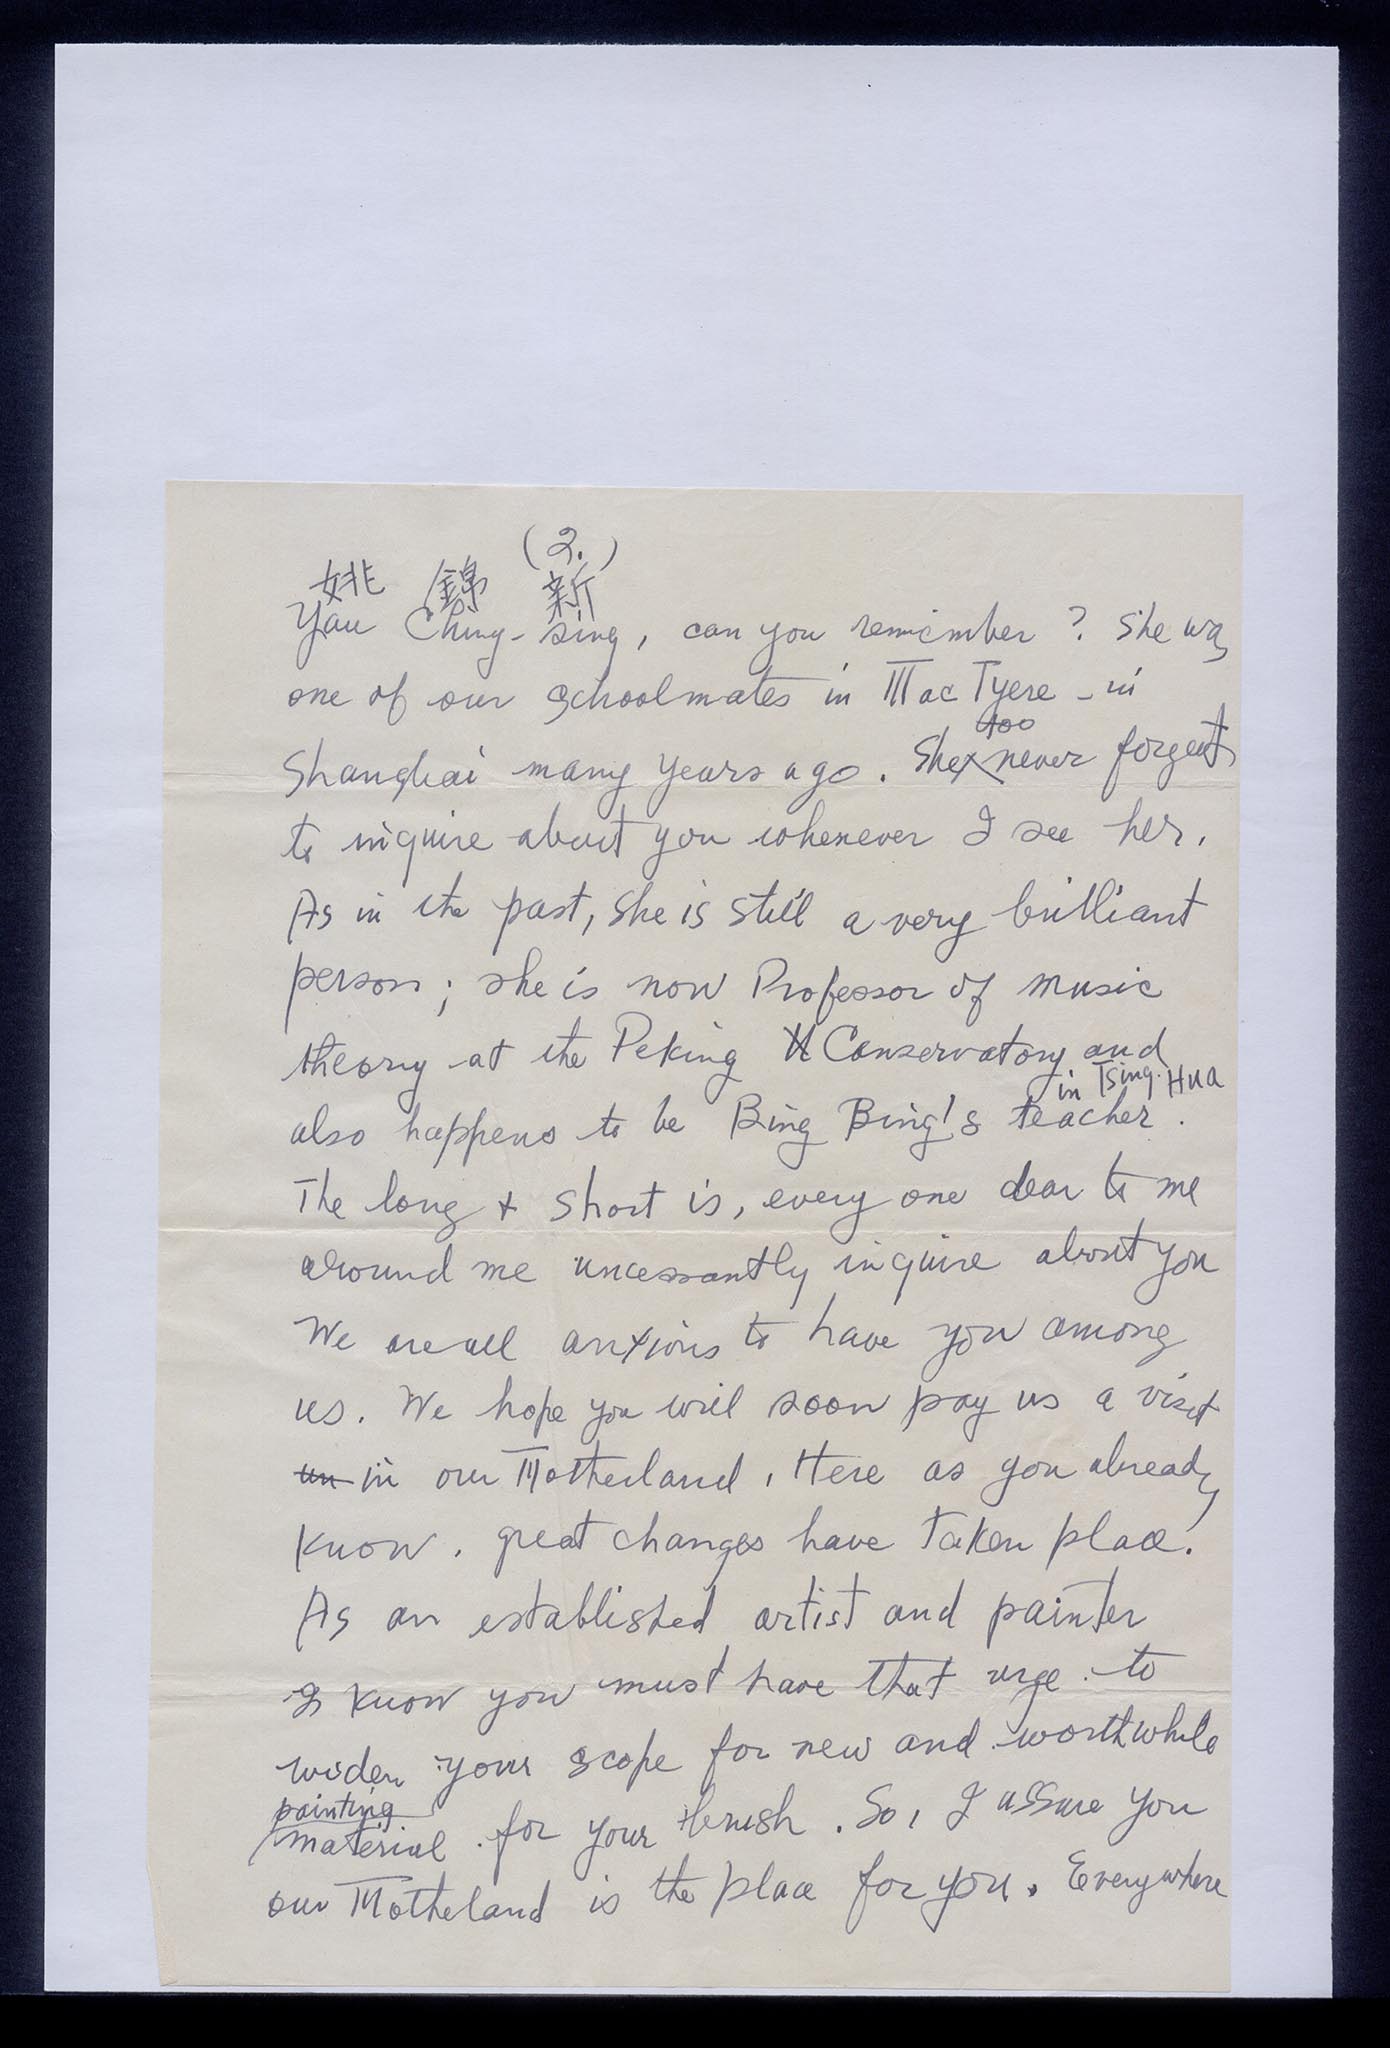 (2.)
姚 錦 新
Yau Ching-sing, can you remember? She was
one of our schoolmates in MacTyere - in
too
Shanghai many years ago. She never forgets
to inquire about you whenever I see her.
As in the past, she is still a very brilliant
person; she is now Professor of music
theory at the Peking Conservatory and
in Tsing-Hua
also happens to be Bing Bing's teacher.
The long + short is, every one dear to me
around me uncessantly inquire about you
We are all anxious to have you among
us. We hope you will soon pay us a visit
un in our Motherland, Here as you already
know. great changes have taken place!
As an established artist and painter
I know you must have that urge to
widen your scope for new and worthwhile
painting
material for your brush. So, I assure you
our Motheland is the place for you. Everywhere